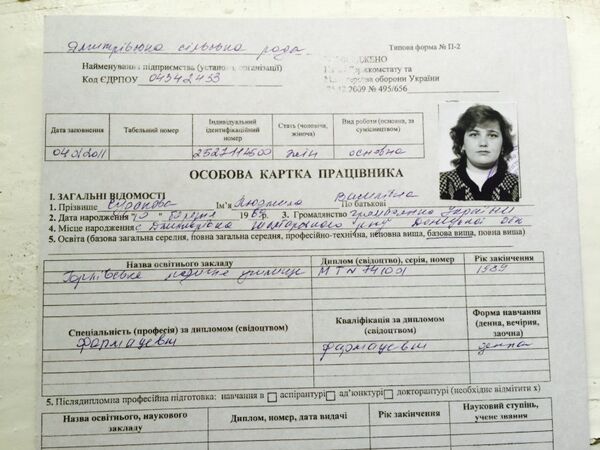 Дмитрівська сільська рада
Типова форма № П-2
Найменування підприємства (установи, організації)
Код ЄДРПОУ 04342433
ДЖЕНО
Держкомстату та
Міністерства оборони України
.12.2009 № 495/656
Дата заповнення Табельний номер Індивідуальний ідентифікаційний номер Стать (чоловіча, жіноча) Вид роботи (основна, за сумісництвом)
жін основна
ОСОБОВА КАРТКА ПРАЦІВНИКА
I. ЗАГАЛЬНІ ВІДОМОСТІ
1. Прізвище Ім'я Людмила По батькові
2. Дата народження 19 р. 3. Громадянство громадянка України
4. Місце народження с. Дмитрівка Шахтарського р-ну Донецької обл
5. Освіта (базова загальна середня, повна загальна середня, професійно-технічна, неповна вища, базова вища, повна вища)
Назва освітнього закладу Диплом (свідоцтво), серія, номер Рік закінчення
Горлівське медичне училище МТ № 741001 1989
Спеціальність (професія) за дипломом (свідоцтвом) Кваліфікація за дипломом (свідоцтвом) Форма навчання (денна, вечірня, заочна)
фармацевт фармацевт денна
5. Післядипломна професійна підготовка: навчання в аспірантурі ад'юнктурі докторантурі (необхідне відмітити x)
Назва освітнього, наукового закладу Диплом, номер, дата видачі Рік закінчення Науковий ступінь, учене звання